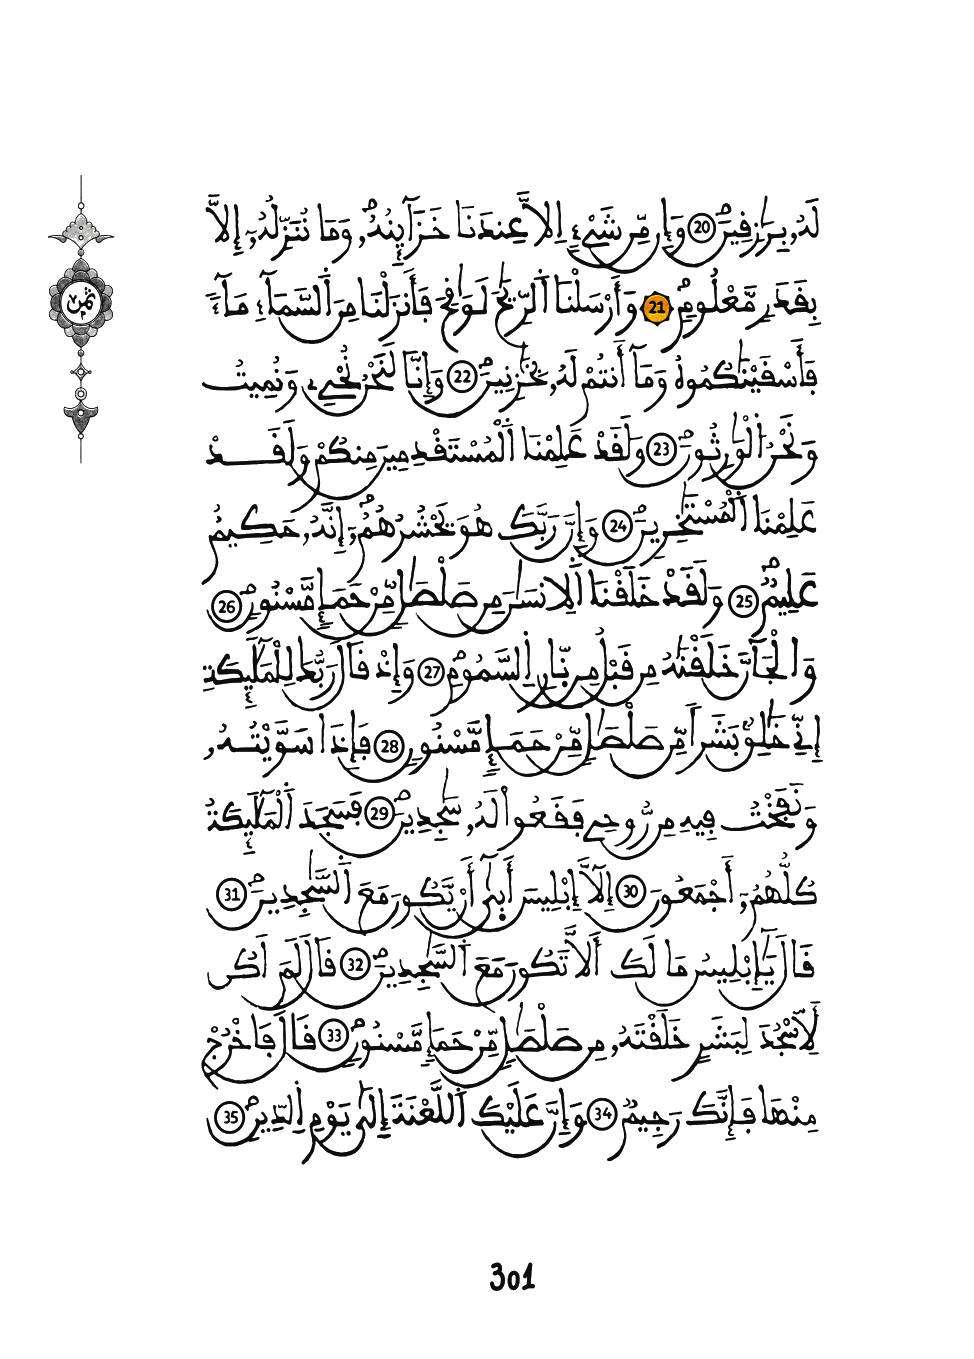 ثمن
لَهُۥ بِرَٰزِقِينَۖ 20 وَإِن مِّن شَےْءٍ اِلَّا عِندَنَا خَزَآئِنُهُۥۖ وَمَا نُنَزِّلُهُۥٓ إِلَّا
بِقَدَرٖ مَّعْلُومٖۖ 21 وَأَرْسَلْنَا اَ۬لرِّيَٰحَ لَوَٰقِحَ فَأَنزَلْنَا مِنَ اَ۬لسَّمَآءِ مَآءٗ
فَأَسْقَيْنَٰكُمُوهُ وَمَآ أَنتُمْ لَهُۥ بِخَٰزِنِينَۖ 22 وَإِنَّا لَنَحْنُ نُحْےِۦ وَنُمِيتُ
وَنَحْنُ اُ۬لْوَٰرِثُونَۖ 23 وَلَقَدْ عَلِمْنَا اَ۬لْمُسْتَقْدِمِينَ مِنكُمْ وَلَقَدْ
عَلِمْنَا اَ۬لْمُسْتَـٔخِرِينَۖ 24 وَإِنَّ رَبَّكَ هُوَ يَحْشُرُهُمُۥٓۖ إِنَّهُۥ حَكِيمٌ
عَلِيمٞۖ 25 وَلَقَدْ خَلَقْنَا اَ۬لِانسَٰنَ مِن صَلْصَٰلٖ مِّنْ حَمَإٖ مَّسْنُونٖۖ 26
وَالْجَآنَّ خَلَقْنَٰهُ مِن قَبْلُ مِن نّ۪ارِ اِ۬لسَّمُومِۖ 27 وَإِذْ قَالَ رَبُّكَ لِلْمَلَٰٓئِكَةِ
إِنِّے خَٰلِقُۢ بَشَراٗ مِّن صَلْصَٰلٖ مِّنْ حَمَإٖ مَّسْنُونٖ 28 فَإِذَا سَوَّيْتُهُۥ
وَنَفَخْتُ فِيهِ مِن رُّوحِے فَقَعُواْ لَهُۥ سَٰجِدِينَۖ 29 فَسَجَدَ اَ۬لْمَلَٰٓئِكَةُ
كُلُّهُمُۥٓ أَجْمَعُونَ 30 إِلَّآ إِبْلِيسَ أَب۪يٰٓ أَنْ يَّكُونَ مَعَ اَ۬لسَّٰجِدِينَۖ 31
قَالَ يَٰٓإِبْلِيسُ مَا لَكَ أَلَّا تَكُونَ مَعَ اَ۬لسَّٰجِدِينَۖ 32 قَالَ لَمَ اَكُن
لِّأَسْجُدَ لِبَشَرٍ خَلَقْتَهُۥ مِن صَلْصَٰلٖ مِّنْ حَمَإٖ مَّسْنُونٖۖ 33 قَالَ فَاخْرُجْ
مِنْهَا فَإِنَّكَ رَجِيمٞۖ 34 وَإِنَّ عَلَيْكَ اَ۬للَّعْنَةَ إِلَىٰ يَوْمِ اِ۬لدِّينِۖ 35
301